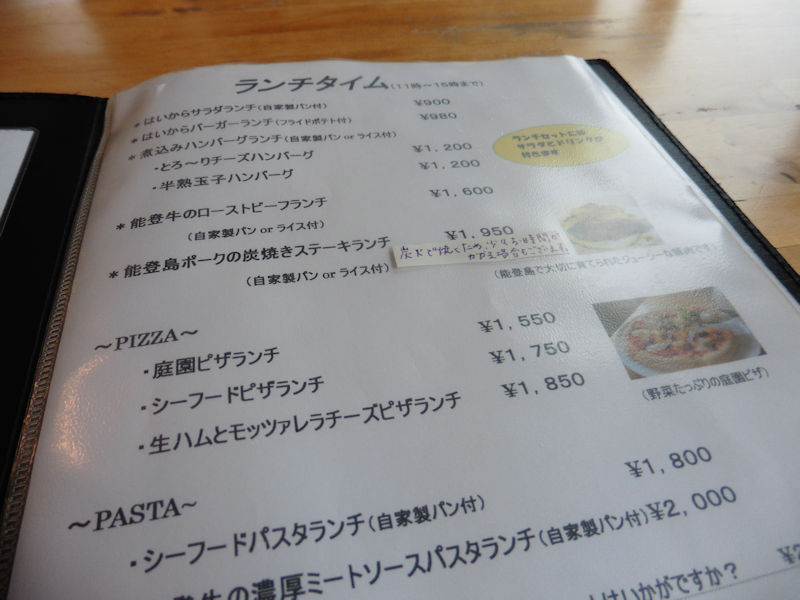 ランチタイム(11時～15時まで)
＊はいからサラダランチ(自家製パン付) ¥900
＊はいからバーガーランチ(フライドポテト付) ¥980
＊煮込みハンバーグランチ(自家製パン or ライス付)
・とろ～りチーズハンバーグ ¥1,200
・半熟玉子ハンバーグ ¥1,200
ランチセットには
サラダとドリンクが
付きます
＊能登牛のローストビーフランチ ¥1,600
(自家製パン or ライス付)
＊能登島ポークの炭焼きステーキランチ ¥1,950
(自家製パン or ライス付)
炭火で焼くため、少々お時間が
かかる場合もございます
(能登島で大切に育てられたジューシーな豚肉です)
～PIZZA～
・庭園ピザランチ ¥1,550
・シーフードピザランチ ¥1,750
・生ハムとモッツァレラチーズピザランチ ¥1,850
(野菜たっぷりの庭園ピザ)
～PASTA～
・シーフードパスタランチ(自家製パン付) ¥1,800
牛の濃厚ミートソースパスタランチ(自家製パン付) ¥2,000
はいかがですか？